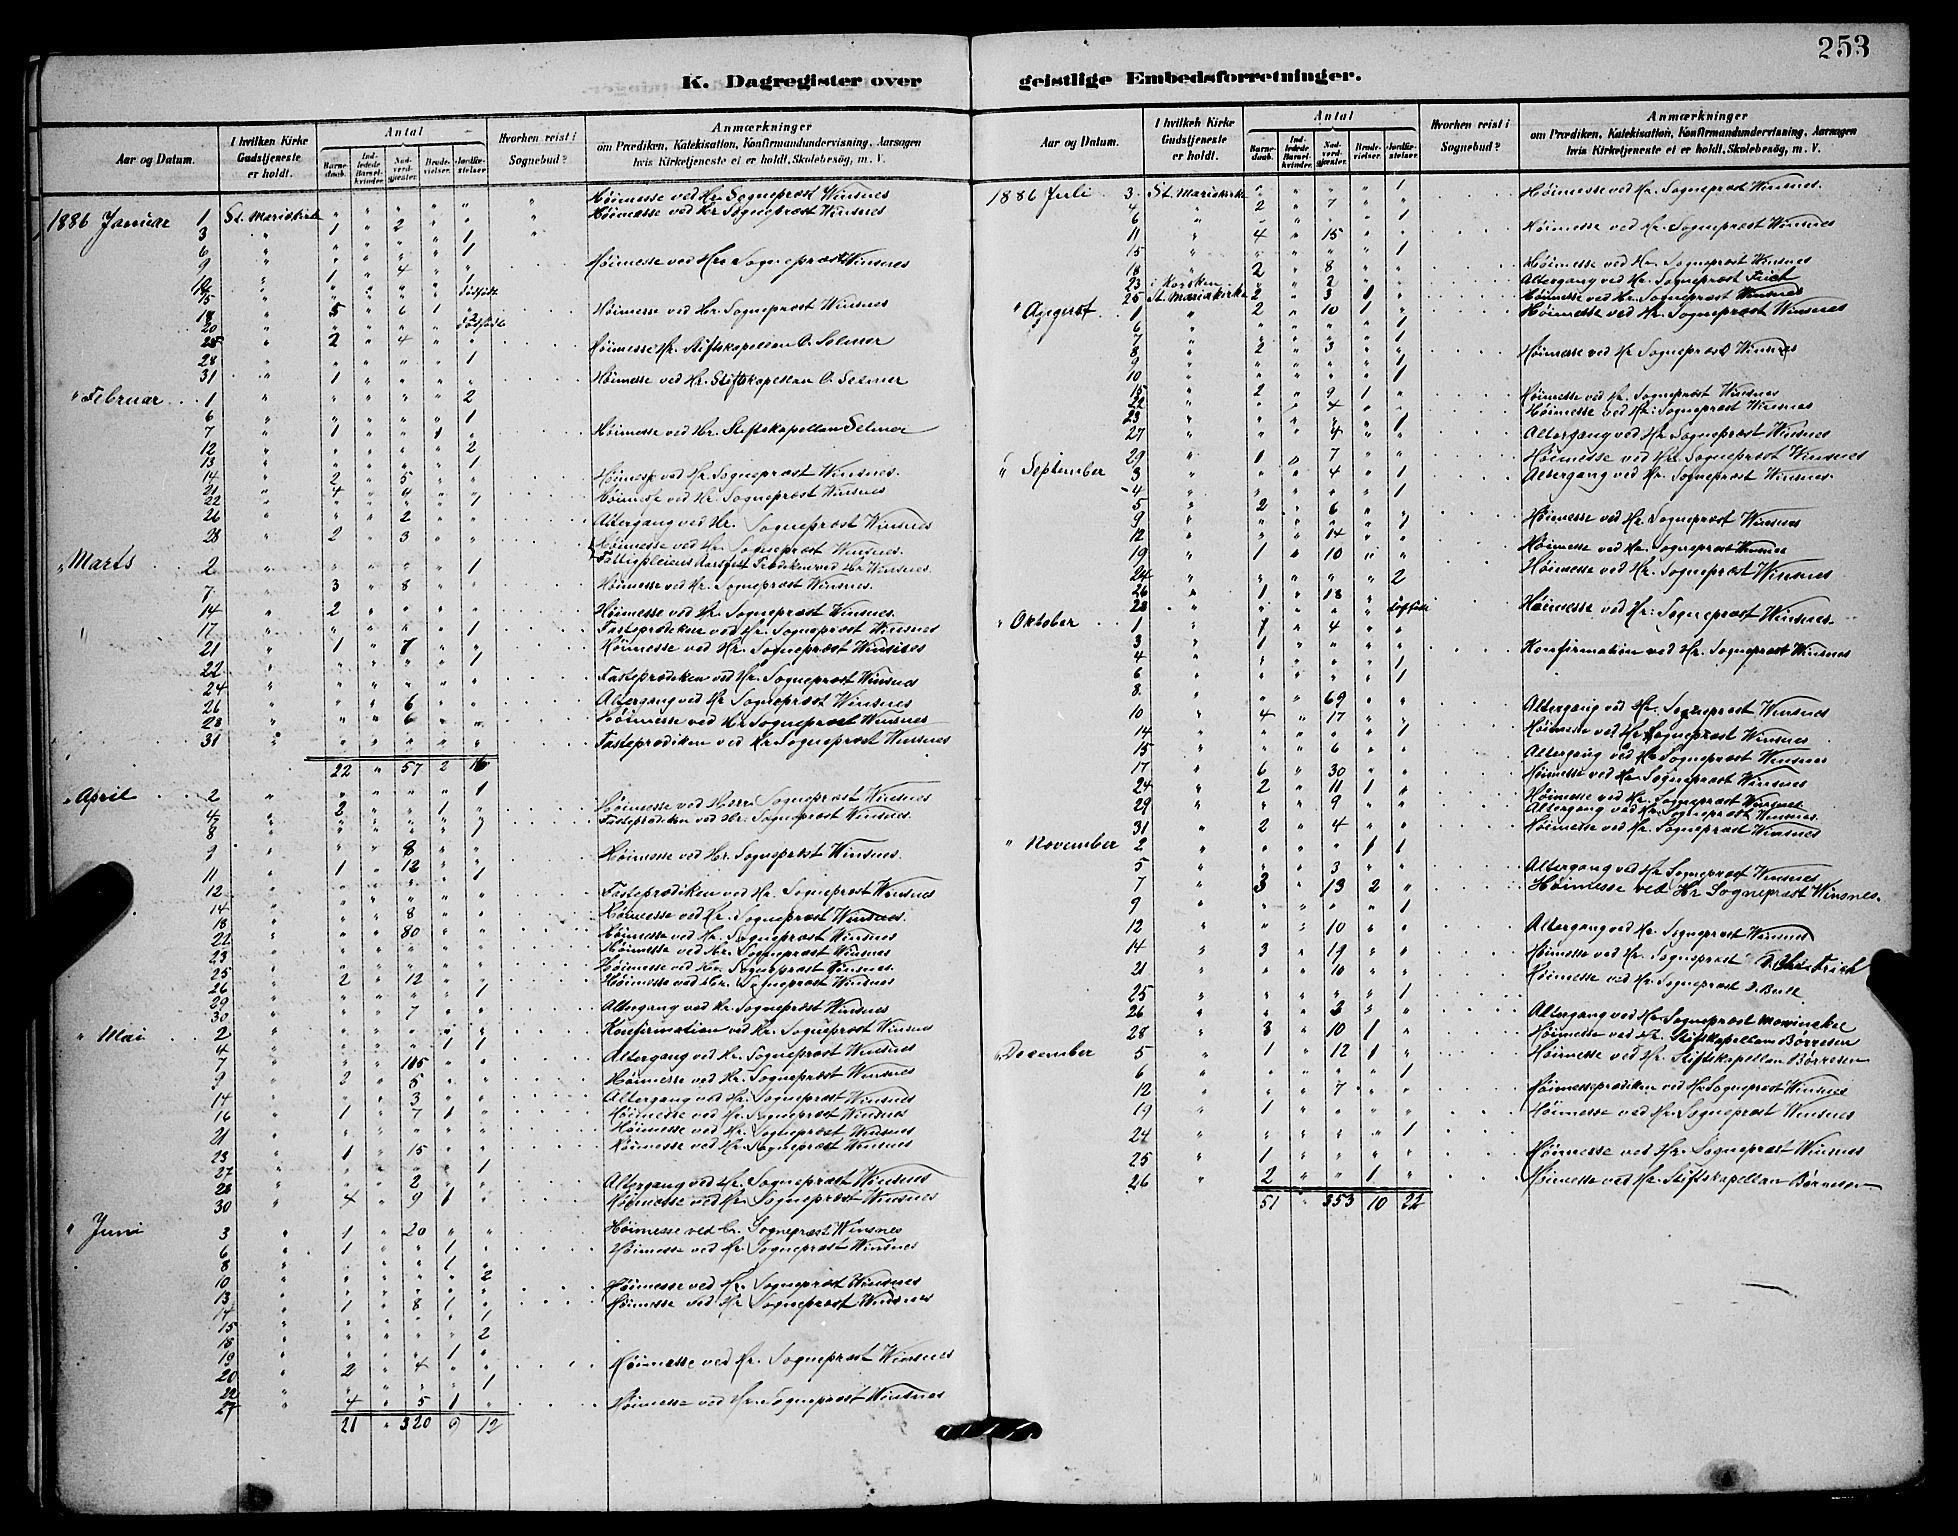 253
K. Dagregister over geistlige Embedsforretninger.
Aar og Datum. I hvilken Kirke Gudstjeneste er holdt. Antal Barnedaab. Indledede Barselkvinder. Nadverdgjæster. Brudevielser. Jordfæstelser. Hvorhen reist i Sognebud? Anmærkninger om Prædiken, Katekisation, Konfirmandundervisning, Aarsagen hvis Kirketjeneste ei er holdt, Skolebesøg, m. V.
Høimesse ved Hr. Sogneprest Winsnes
1886 Januar 1 St. Mariakirke " " " " " Høimesse ved Hr Sogneprest Winsnes
3 " 1 " 2 " 1
6 " " " " " 1
9 " " " 4 " " Høimesse ved Hr Sogneprest Winsnes
" 1 " " " 1
dødfødt
" 5 " 6 1 Høimesse ved Hr. Sogneprest Winsnes
20 " dødfødt
25 " 2 " 4 " " Høimesse Hr. Stiftskapellan O. Selmer
28 " " " " " 1
31 " 1 " " " " Høimesse ved Hr. Stiftskapellan O. Selmer
" Februar 1 " " " " " 2
6 " " " " " 1
7 " 1 " " 1 " Høimesse ved Hr. Stiftskapellan Selmer
12 " " " " " 2
13 " " " " " 1
14 " 2 " 5 " " Høimesse ved Hr Sogneprest Winsnes.
21 " 4 " 4 " " Høimesse ved Hr. Sogneprest Winsnes
22 " " " " " 1
26 " " " 2 " " Altergang ved Hr. Sogneprest Winsnes
28 " 2 " 3 " " Høimesse ved Hr. Sogneprest Winsnes.
" Marts 2 " " " " " 1 Fattigpleiens Aarsfest ved Hr Winsnes.
7 " 3 " 8 " " Høimesse ved Hr. Sogneprest Winsnes.
14 " 2 " " " " Høimesse ved Hr. Sogneprest Winsnes.
17 " " " " " 1 Fasteprediken ved Hr. Sogneprest Winsnes
21 " 1 " 7 " " Høimesse ved Hr. Sogneprest Winsnes
22 " " " " " 1
24 " " " " " " Fasteprediken ved Hr. Sogneprest Winsnes
26 " " " 6 " " Altergang ved Hr Sogneprest Winsnes
28 " " " 6 " " Høimesse ved Hr Sogneprest Winsnes
31 " " " " " " Fasteprediken ved Hr Sogneprest Winsnes
22 " 57 2 16
" April 2 " " " " " 1
4 " 2 " " 1 " Høimesse ved Herr Sogneprest Winsnes
8 " Fasteprediken ved Hr. Sogneprest Winsnes.
9 " " " 8 " "
11 " 1 " 12 " 1 Høimesse ved Hr. Sogneprest Winsnes.
12 "
14 " Fasteprediken ved Hr. Sogneprest Winsnes
18 " " " 8 " " Høimesse ved Hr. Sogneprest Winsnes.
22 " " " 80 " " Høimesse ved Hr. Sogneprest Winsnes
23 " " " " " " Høimesse ved Hr. Sogneprest Winsnes
25 " Høimesse ved Hr. Sogneprest Winsnes.
26 " 2 " 12 " " Høimesse ved Hr. Sogneprest Winsnes
29 " " " " " 1
30 " " " 7 " " Altergang ved Hr. Sogneprest Winsnes
" Mai 2 " Konfirmation ved Hr. Sogneprest Winsnes
4 " " " " 1 1
7 " " " 105 " " Altergang ved Hr. Sogneprest Winsnes
9 " 2 " 5 " " Høimesse ved Hr. Sogneprest Winsnes
14 " " " 3 " " Altergang ved Hr. Sogneprest Winsnes
16 " 1 " 7 1 " Høimesse ved Hr. Sogneprest Winsnes
21 " Høimesse ved Hr. Sogneprest Winsnes
23 " 1 " 15 " " Høimesse ved Hr. Sogneprest Winsnes
27 " " " " " 1
28 " " " 2 " " Altergang ved Hr. Sogneprest Winsnes
30 " 4 " 9 1 " Høimesse ved Hr. Sogneprest Winsnes
" Juni 3 " 1 " 20 " " Høimesse ved Hr. Sogneprest Winsnes
6 " 1 " " 1 " Høimesse ved Hr. Sogneprest Winsnes
8 " " " " 1 "
10 " " " " " 2 Høimesse ved Hr. Sogneprest Winsnes
13 " 1 " 8 1 " Høimesse ved Hr Sogneprest Winsnes
14 " " " " " 1
15 " " " " " 2
18 "
19 " " " " 1 "
20 " 2 " 4 " " Høimesse ved Hr. Sogneprest Winsnes
22 " " " " " 1
27 " 4 " 5 1 " Høimesse ved Hr. Sogneprest Winsnes
21 " 320 9 12
Aar og Datum. I hvilken Kirke Gudstjeneste er holdt. Antal Barnedaab. Indledede Barselkvinder. Nadverdgjæster. Brudevielser. Jordfæstelser. Hvorhen reist i Sognebud? Anmærkninger om Prædiken, Katekisation, Konfirmandundervisning, Aarsagen hvis Kirketjeneste ei er holdt, Skolebesøg, m. V.
1886 Juli 3 St. Mariakirke " " " " 1
4 " 2 " 7 " " Høimesse ved Hr. Sogneprest Winsnes.
6 " " " " " 1
11 " 4 " 15 " " Høimesse ved Hr. Sogneprest Winsnes
15 " " " " " 1
18 " 2 " 8 " " Høimesse ved Hr. Sogneprest Winsnes
23 " " 2 " " Altergang ved Hr. Sogneprest Frich
25 St. Mariakirke 2 " 3 1 " Høimesse ved Hr. Sogneprest Winsnes
" August 1 " 2 " 10 1 " Høimesse ved Hr. Sogneprest Winsnes
6 " " " " " 1
7 " " " " " 1
8 " 2 " 3 " " Høimesse ved Hr Sogneprest Winsnes
9 " " " " " 1
10 " " " " " 1
15 " 2 " 9 1 " Høimesse ved Hr. Sogneprest Winsnes
22 " " " 4 " " Høimesse ved Hr. Sogneprest Winsnes
23 " " " " " 1
27 " " " 4 " " Altergang ved Hr Sogneprest Winsnes
29 " 1 " 7 " " Høimesse ved Hr Sogneprest Winsnes
" September 3 " " " 4 " 1 Altergang ved Hr. Sogneprest Winsnes.
4 " " " " " 1
5 " 2 " 6 " " Høimesse ved Hr. Sogneprest Winsnes
9 " " " " " 1
12 " " " 14 " " Høimesse ved Hr. Sogneprest Winsnes
19 " 1 " 10 " " Høimesse ved Hr. Sogneprest Winsnes
24 " " " " " 2
26 " 1 " 18 " " Høimesse ved Hr. Sogneprest Winsnes.
28 " " " " "
" Oktober 1 " " 4 " "
3 " 1 " " " " Konfirmation ved Hr. Sogneprest Winsnes
4 " " " " " 1
6 " " " " " 1
8. " " " 69 " " Altergang ved Hr. Sogneprest Winsnes
10 " 4 " 17 " " Høimesse ved Hr Sogneprest Winsnes
14 " " " " " 1
15 " " " 6 " " Altergang ved Hr Sogneprest Winsnes
17 " 6 " 30 " " Høimesse ved Hr Sogneprest Winsnes
24 " 2 " 11 1 " Høimesse ved Hr. Sogneprest Winsnes
29 " " " 9 " " Altergang ved Hr. Sogneprest Winsnes.
31 " 2 " 4 " " Høimesse ved Hr. Sogneprest Winsnes
" November 2 " " " " 1 1
5 " " " 3 " " Altergang ved Hr Sogneprest Winsnes
7 " 3 " 13 2 " Høimesse ved Hr Sogneprest Winsnes.
9 " " " " " 1
12 " " " 10 " " Altergang ved Hr. Sogneprest Winsnes
14 " 3 " 19 " " Høimesse ved Hr. Sogneprest Frich
21 " " " 10 " " Høimesse ved Hr. Sogneprest J. Bull
25 " " " " " 1
26 " " " 3 " " Altergang ved Hr Sogneprest Mowinckel
28 " 3 " 10 1 " Høimesse ved Hr. Stiftskapellan Børresen
" December 5 " 1 " 12 1 " Høimesse ved Hr. Stiftskapellan Børresen
6 " " " " " 1
12 " " " 7 " " Høimesseprediken ved Hr Sogneprest Winsnes
19 " 1 " " " " Høimesse ved Hr. Sogneprest Winsnes
24 " " " " " 1
25 " 1 " " " " Høimesse ved Hr. Sogneprest Winsnes
26 " 2 " " 1 " Høimesse ved Hr. Stiftskapellan Børresen
51 " 353 10 22